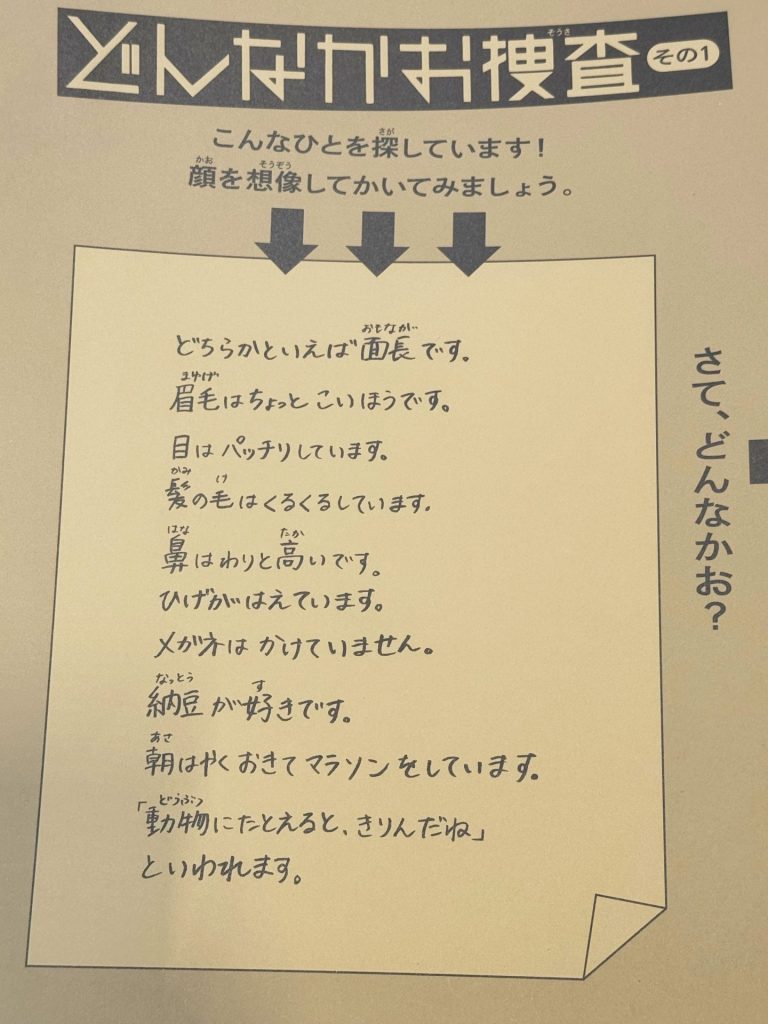 どんなかお捜査 その1
こんなひとを探しています！
顔を想像してかいてみましょう。
どちらかといえば面長です。
眉毛はちょっとこいほうです。
目はパッチリしています。
髪の毛はくるくるしています。
鼻はわりと高いです。
ひげがはえています。
メガネはかけていません。
納豆が好きです。
朝はやくおきてマラソンをしています。
「動物にたとえると、きりんだね」
といわれます。
さて、どんなかお？